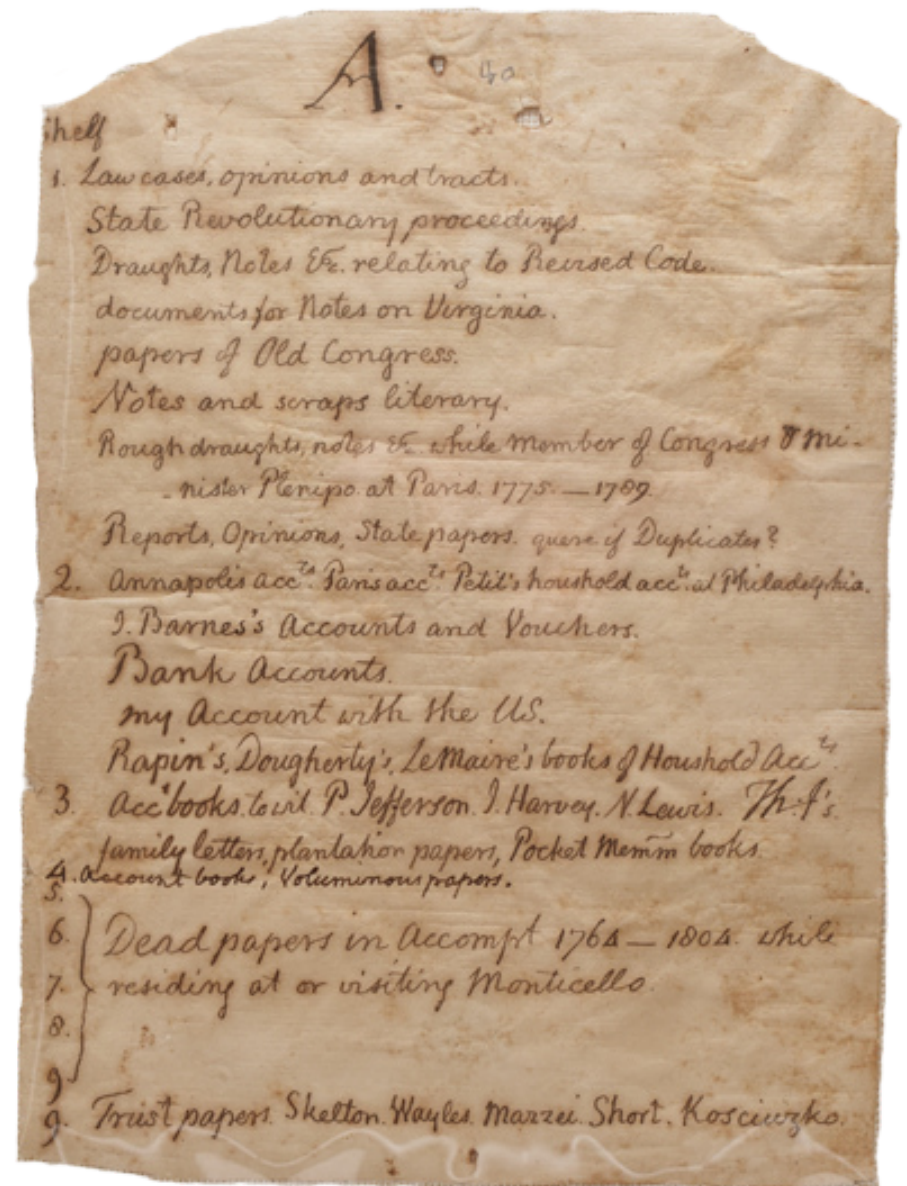 A.
Shelf
1. Law cases, opinions and tracts.
State Revolutionary proceedings.
Draughts, Notes &c. relating to Revised Code.
documents for Notes on Virginia.
papers of Old Congress.
Notes and scraps literary.
Rough draughts, notes &c. while Member of Congress & Mi-
-nister Plenipo. at Paris. 1775. — 1789.
Reports, Opinions, State papers. quere if Duplicates?
2. Annapolis accts. Paris accts. Petit's houshold accts. at Philadelphia.
I. Barnes's Accounts and Vouchers.
Bank Accounts.
my Account with the US.
Rapin's, Dougherty's, LeMaire's books of Houshold Accts.
3. Acct books. to wit. P. Jefferson. I. Harvey. N. Lewis. Th. J's.
family letters, plantation papers, Pocket Memm books.
4. Account books, Voluminous papers.
5.
6. Dead papers in Accompt 1764 — 1804. while
7. residing at or visiting Monticello.
8.
9
9. Trust papers. Skelton. Wayles. Mazzei. Short. Kosciuzko.